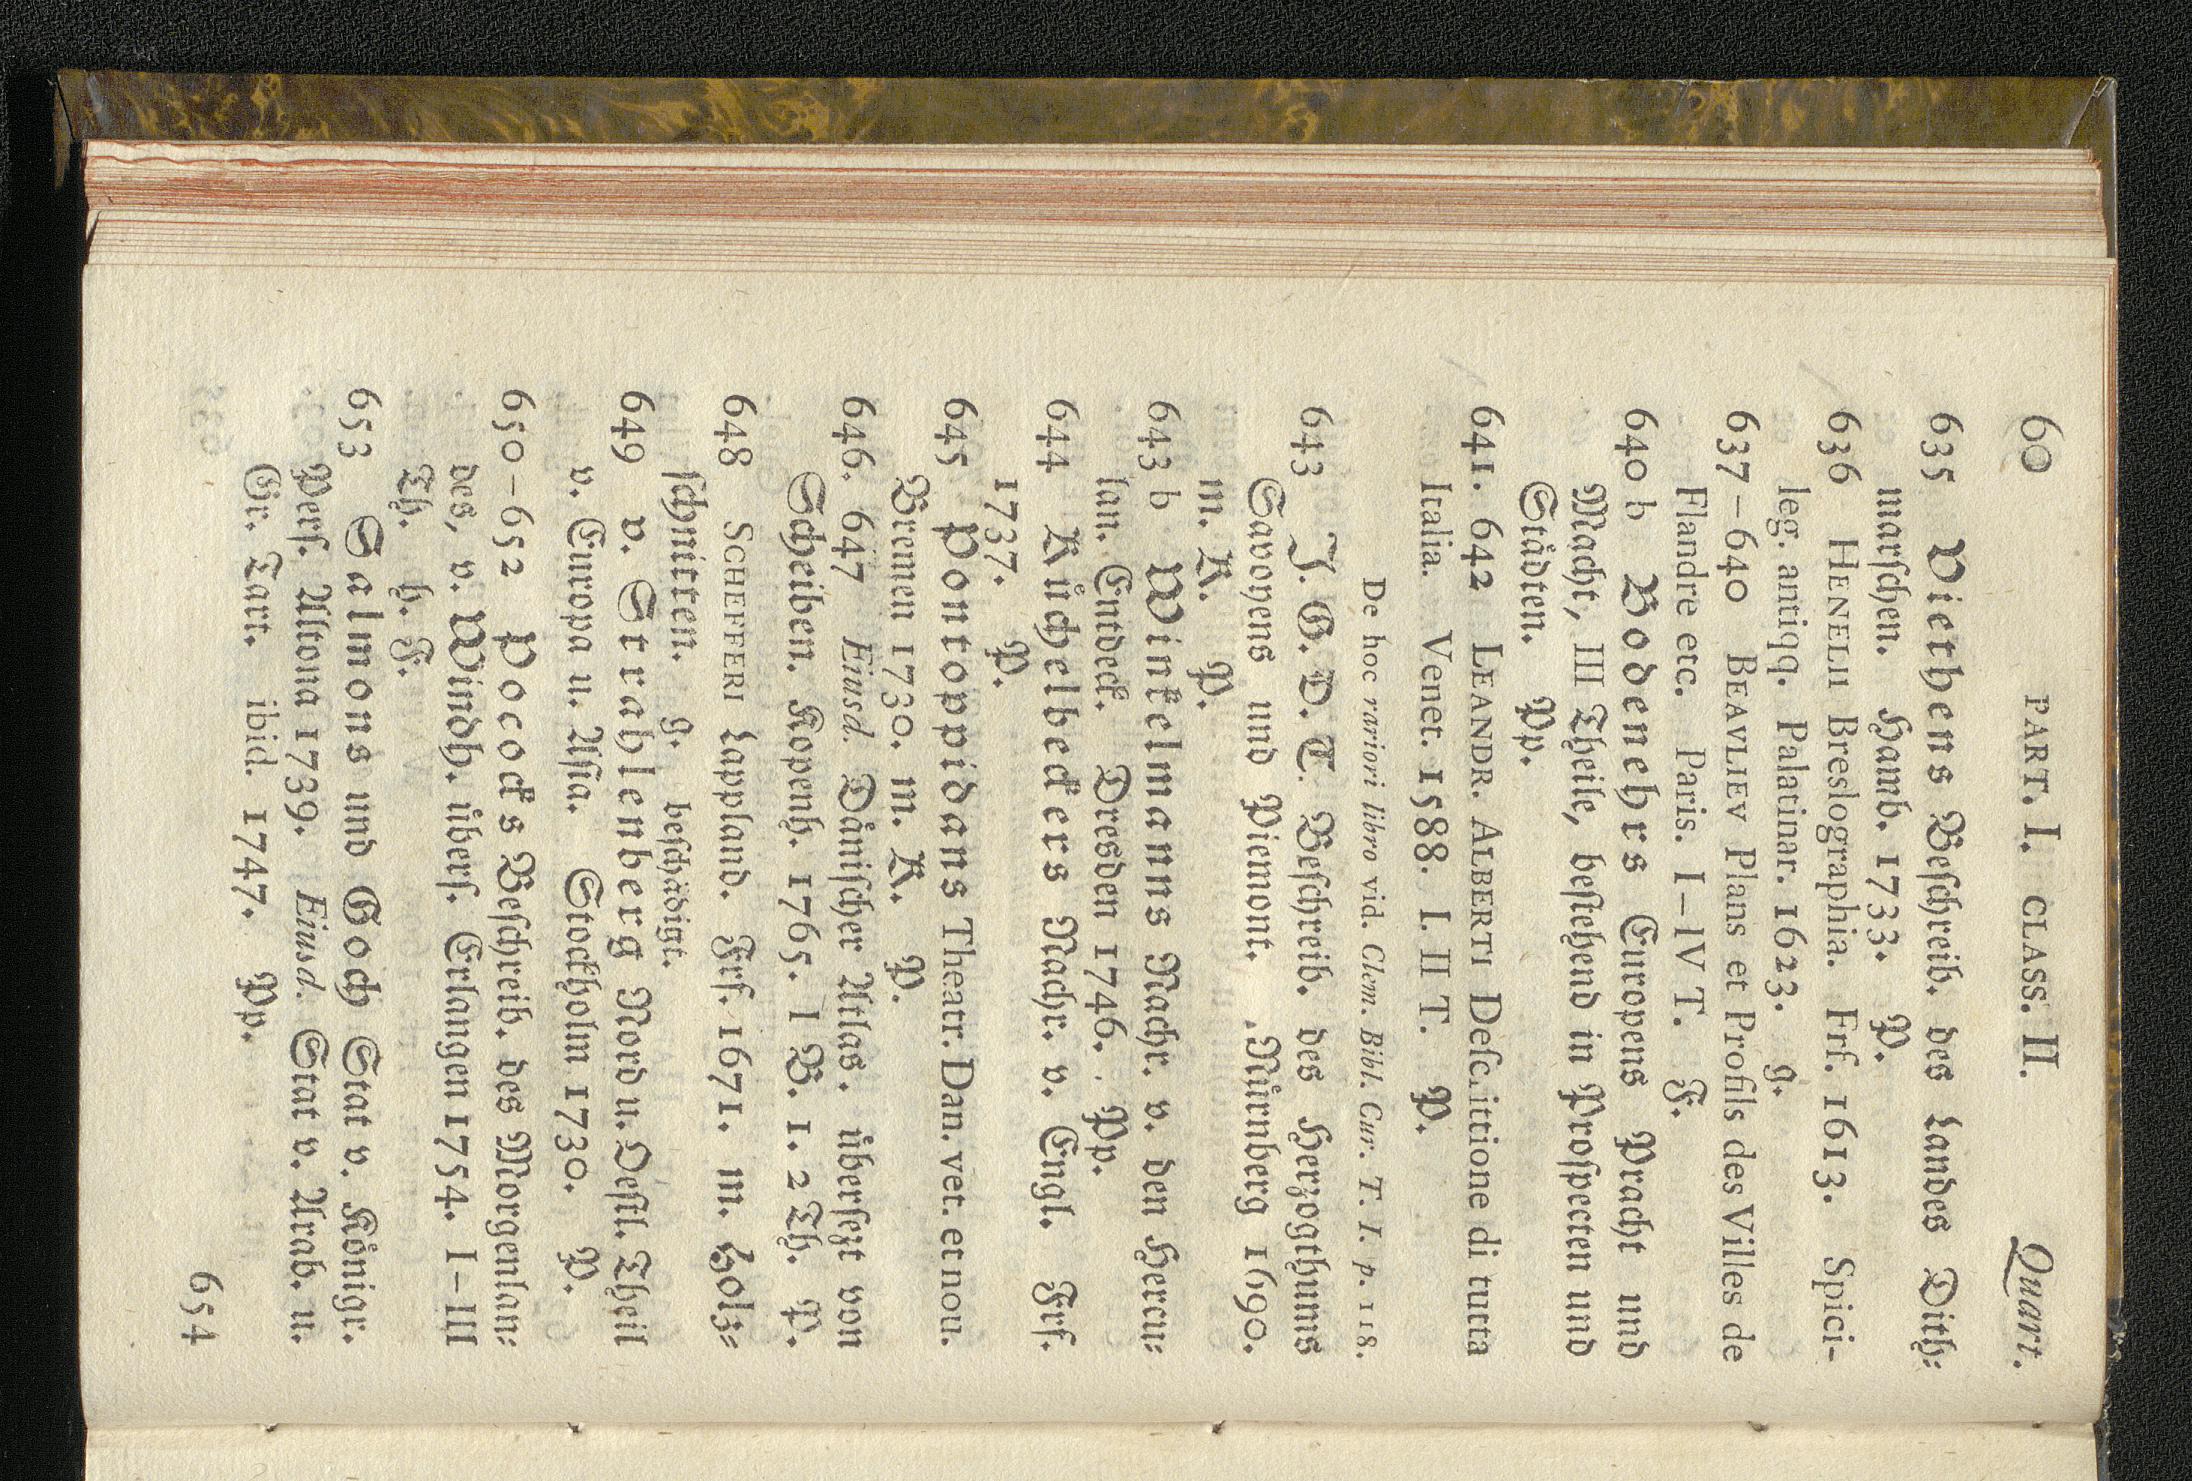 60 PART. I. CLASS. II. Quart.
635 Viethens Beſchreib. des Landes Dith-
marſchen. Hamb. 1733. P.
636 HENELII Breslographia. Frf. 1613. Spici-
leg. antiqq. Palatinar. 1623. g.
637–640 BEAVLIEV Plans et Profils des Villes de
Flandre etc. Paris. I–IV T. F.
640 b Bodenehrs Europens Pracht und
Macht, III Theile, beſtehend in Proſpecten und
Städten. Pp.
641. 642 LEANDR. ALBERTI Deſc.ittione di tutta
Italia. Venet. 1588. I. II T. P.
De hoc rariori libro vid. Clem. Bibl. Cur. T. I. p. 118.
643 J. G. D. T. Beſchreib. des Herzogthums
Savoyens und Piemont. Nürnberg 1690.
m. K. P.
643 b Winkelmanns Nachr. v. den Hercu-
lan. Entdeck. Dresden 1746. Pp.
644 Küchelbeckers Nachr. v. Engl. Frf.
1737. P.
645 Pontoppidans Theatr. Dan. vet. et nou.
Bremen 1730. m. K. P.
646. 647 Eiusd. Däniſcher Atlas. überſezt von
Scheiben. Kopenh. 1765. I B. 1. 2 Th. P.
648 SCHEFFERI Lappland. Frf. 1671. m. Holz-
ſchnitten. g. beſchädigt.
649 v. Strahlenberg Nord u. Oeſtl. Theil
v. Europa u. Aſia. Stockholm 1730. P.
650–652 Pococks Beſchreib. des Morgenlan-
des, v. Windh. überſ. Erlangen 1754. I–III
Th. h. F.
653 Salmons und Goch Stat v. Königr.
Perſ. Altona 1739. Eiusd. Stat v. Arab. u.
Gr. Tart. ibid. 1747. Pp.
654